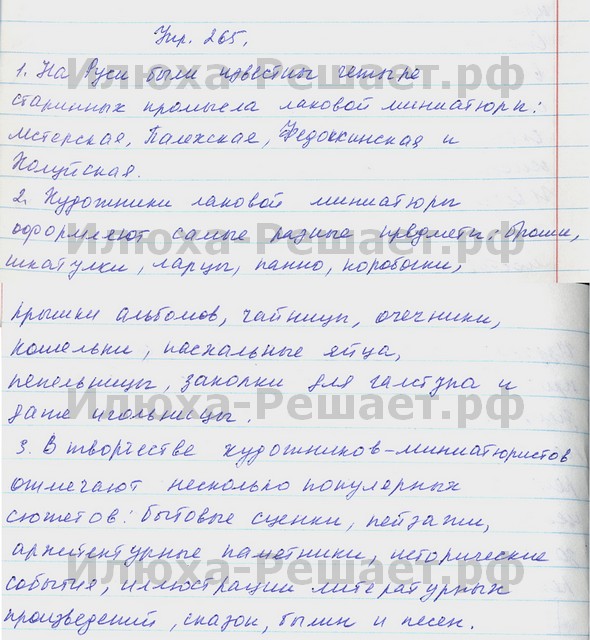 Упр. 265.
1. На Руси были известны четыре
старинных промысла лаковой миниатюры:
Мстерская, Палехская, Федоскинская и
Холуйская.
2. Художники лаковой миниатюры
оформляют самые разные предметы: броши,
шкатулки, ларцы, панно, коробочки,
крышки альбомов, чайницы, очечники,
кошельки, пасхальные яйца,
пепельницы, заколки для галстука и
даже игольницы.
3. В творчестве художников-миниатюристов
отмечают несколько популярных
сюжетов: бытовые сценки, пейзажи,
архитектурные памятники, исторические
события, иллюстрации литературных
произведений, сказок, былин и песен.
Илюха-Решает.рф
Илюха-Решает.рф
Илюха-Решает.рф
Илюха-Решает.рф